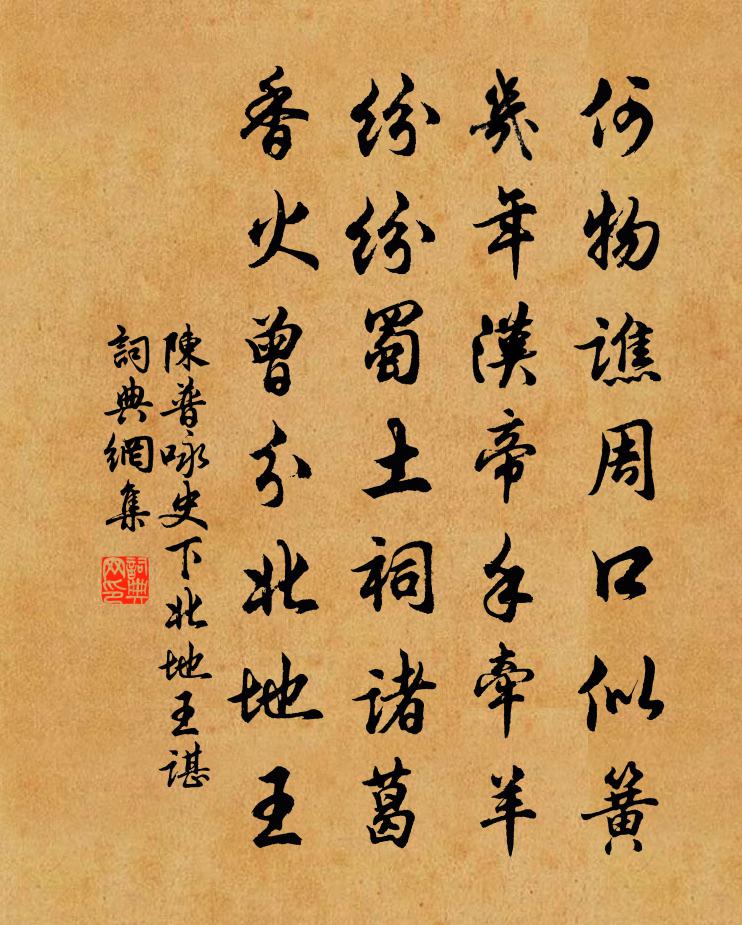 何物譙周口似簧
幾年漢帝手牽羊
紛紛蜀土祠諸葛
香火曾分北地王
陳普咏史下北地王諶
詞典網集
詞典网印